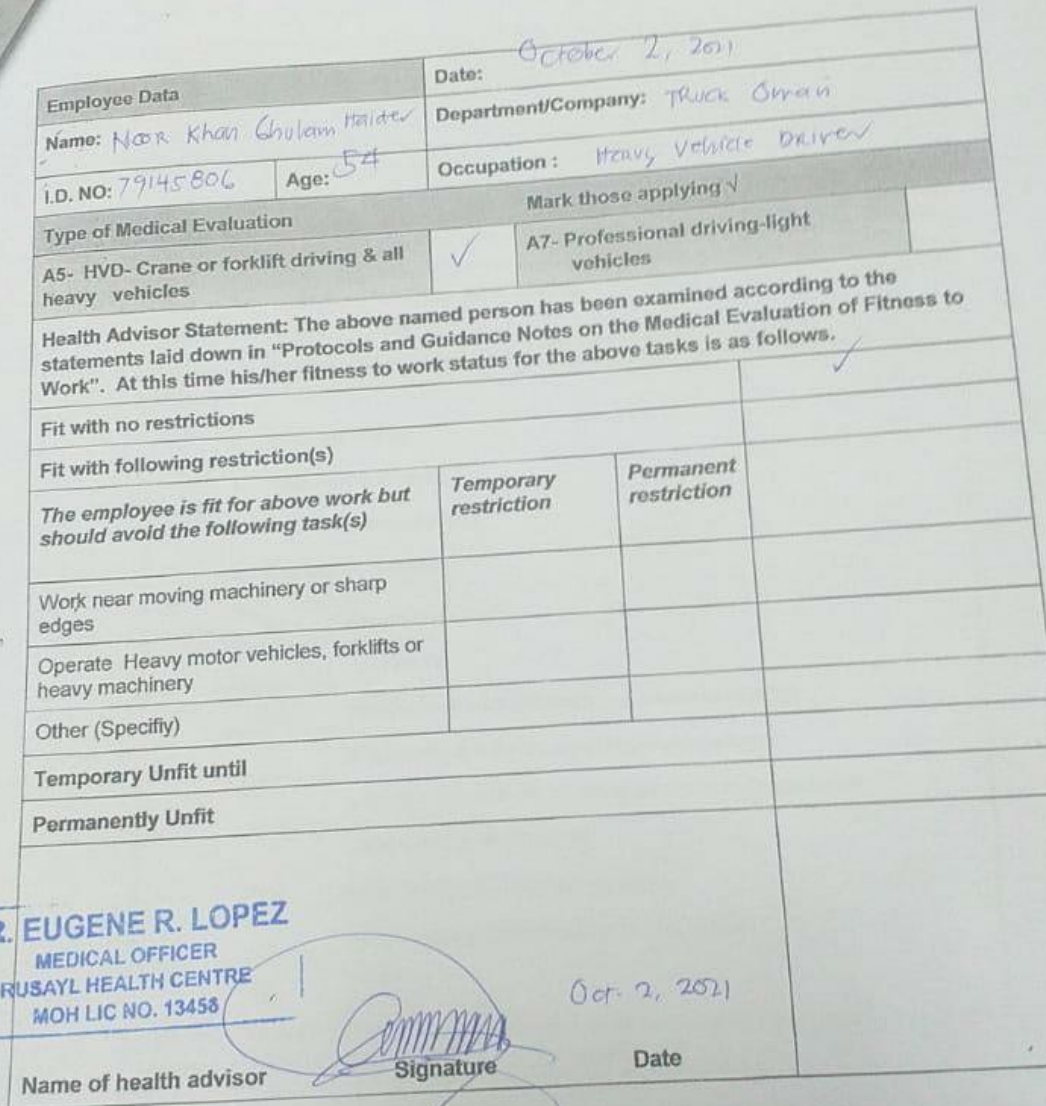 Date: October 2, 2021
Employee Data
Department/Company: TRUCK Oman
Name: NOOR Khan Ghulam Haider
Occupation : Heavy Vehicle DRIVER
I.D. NO: 79145806 Age: 54
Mark those applying √
Type of Medical Evaluation
A5- HVD- Crane or forklift driving & all
heavy vehicles
✓
A7- Professional driving-light
vehicles
Health Advisor Statement: The above named person has been examined according to the
statements laid down in “Protocols and Guidance Notes on the Medical Evaluation of Fitness to
Work”. At this time his/her fitness to work status for the above tasks is as follows.
Fit with no restrictions ✓
Fit with following restriction(s)
The employee is fit for above work but
should avoid the following task(s)
Temporary
restriction
Permanent
restriction
Work near moving machinery or sharp
edges
Operate Heavy motor vehicles, forklifts or
heavy machinery
Other (Specifiy)
Temporary Unfit until
Permanently Unfit
R. EUGENE R. LOPEZ
MEDICAL OFFICER
RUSAYL HEALTH CENTRE
MOH LIC NO. 13458
Oct. 2, 2021
Name of health advisor Signature Date